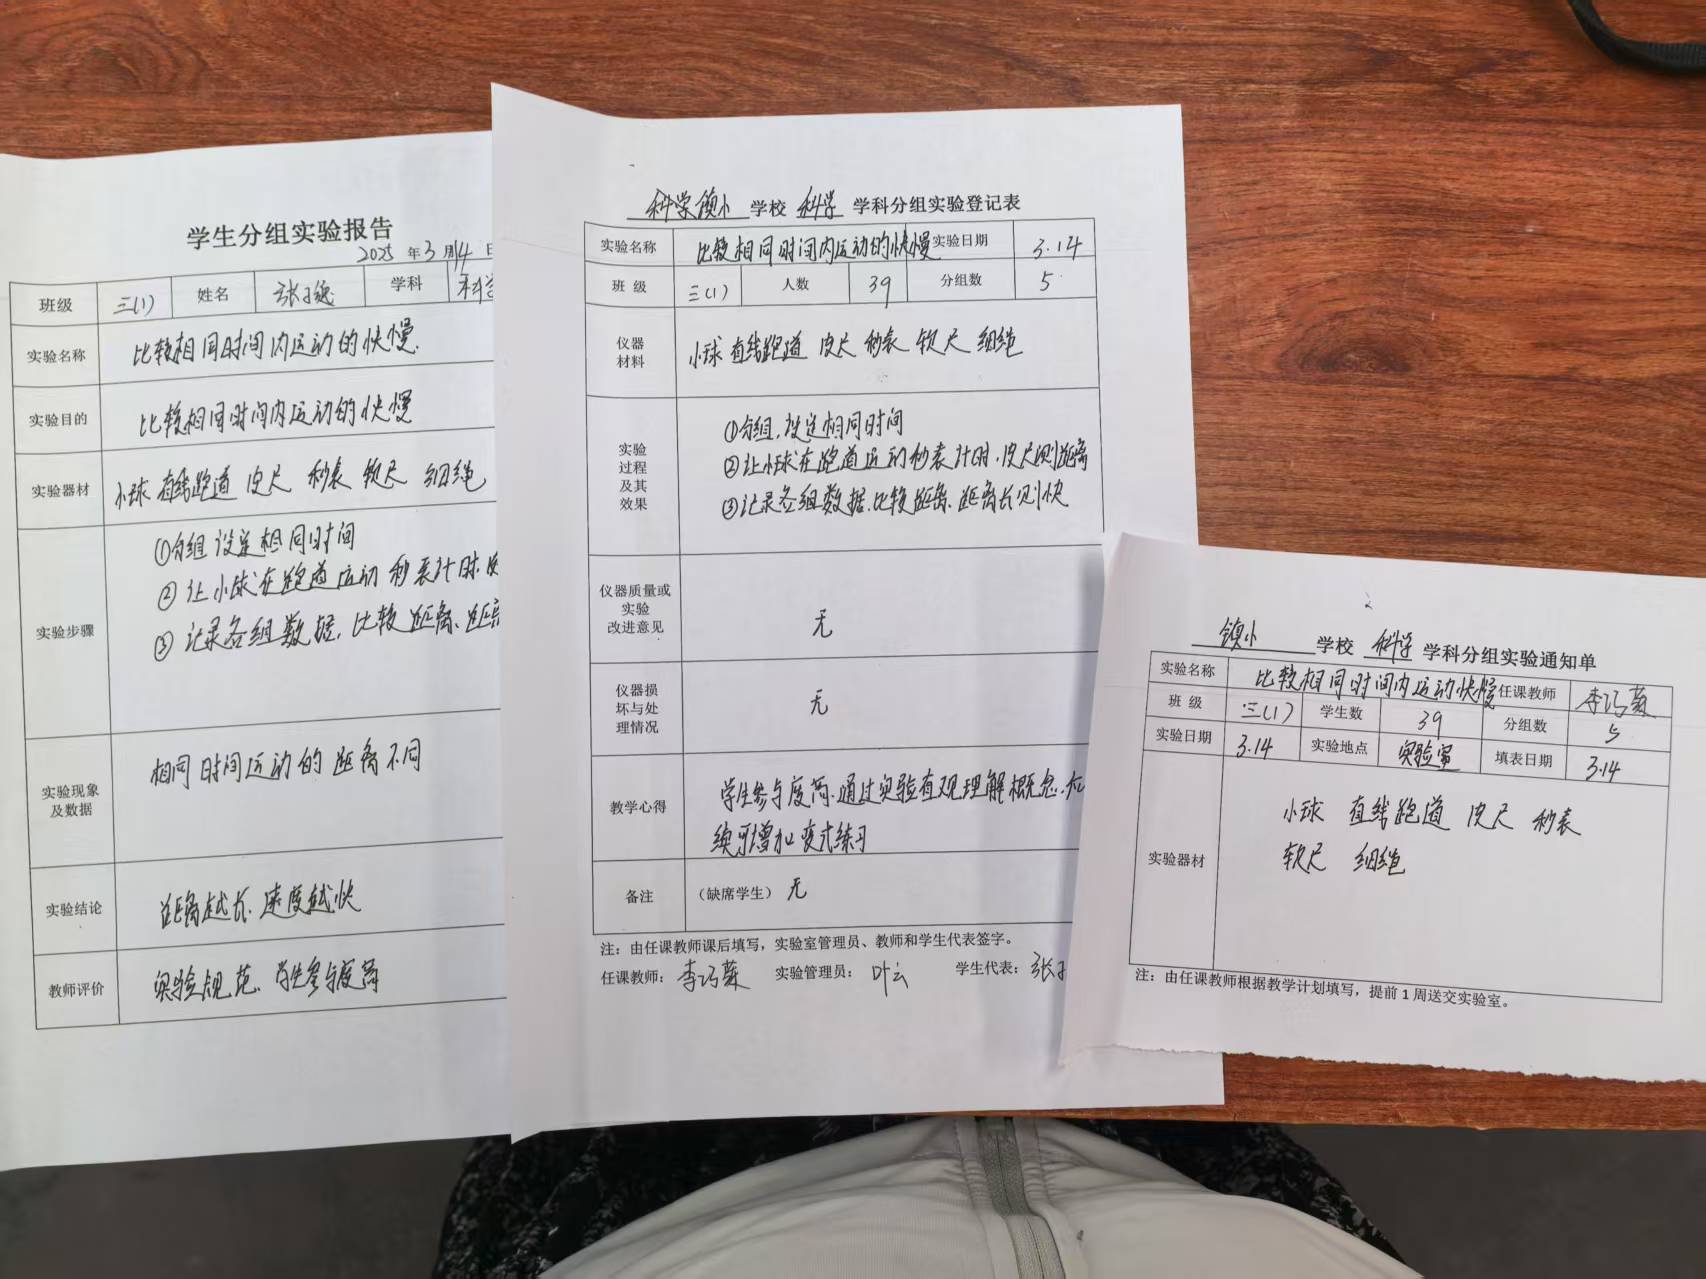 学生分组实验报告
2025 年 3 月 14 日
班级 三(1) 姓名 学科 科学
实验名称 比较相同时间内运动的快慢.
实验目的 比较相同时间内运动的快慢
实验器材 小球 直线跑道 皮尺 秒表 软尺 细绳
实验步骤
①分组 设定相同时间
②让小球在跑道运动 秒表计时.皮
③记录各组数据, 比较距离、距离
实验现象
及数据
相同时间运动的距离不同
实验结论 距离越长、速度越快
教师评价 实验规范、学生参与度高
科学镇小 学校 科学 学科分组实验登记表
实验名称 比较相同时间内运动的快慢 实验日期 3.14
班 级 三(1) 人数 39 分组数 5
仪器
材料
小球 直线跑道 皮尺 秒表 软尺 细绳
实验
过程
及其
效果
①分组,设定相同时间
②让小球在跑道运动秒表计时,皮尺测距离
③记录各组数据.比较距离.距离长则快
仪器质量或
实验
改进意见
无
仪器损
坏与处
理情况
无
教学心得
学生参与度高.通过实验直观理解概念.后
续可增加变式练习
备注 (缺席学生) 无
注:由任课教师课后填写,实验室管理员、教师和学生代表签字。
任课教师: 李巧 实验管理员: 叶云 学生代表: 张
镇小 学校 科学 学科分组实验通知单
实验名称 比较相同时间内运动快慢 任课教师 李巧
班 级 三(1) 学生数 39 分组数 5
实验日期 3.14 实验地点 实验室 填表日期 3.14
实验器材
小球 直线跑道 皮尺 秒表
软尺 细绳
注:由任课教师根据教学计划填写,提前 1 周送交实验室。